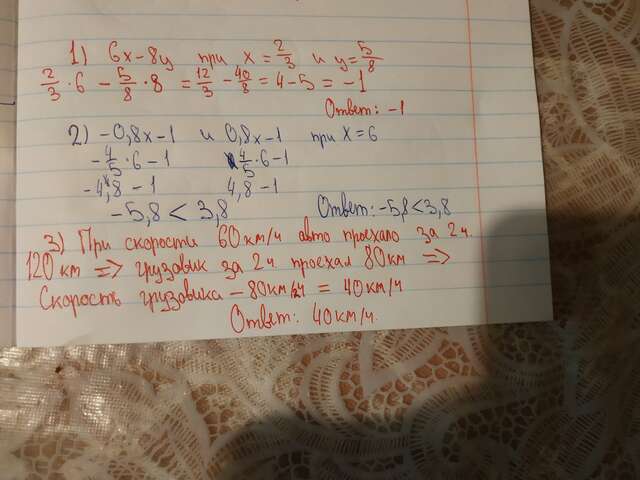 1) 6x - 8y при x = 2/3 и y = 5/8
2/3 · 6 - 5/8 · 8 = 12/3 - 40/8 = 4 - 5 = -1
Ответ: -1
2) -0,8x - 1 и 0,8x - 1 при x = 6
-4/5 · 6 - 1 4/5 · 6 - 1
-4,8 - 1 4,8 - 1
-5,8 < 3,8 Ответ: -5,8 < 3,8
3) При скорости 60 км/ч авто проехало за 2 ч.
120 км => грузовик за 2 ч проехал 80 км =>
Скорость грузовика - 80 км/2ч = 40 км/ч
Ответ: 40 км/ч.